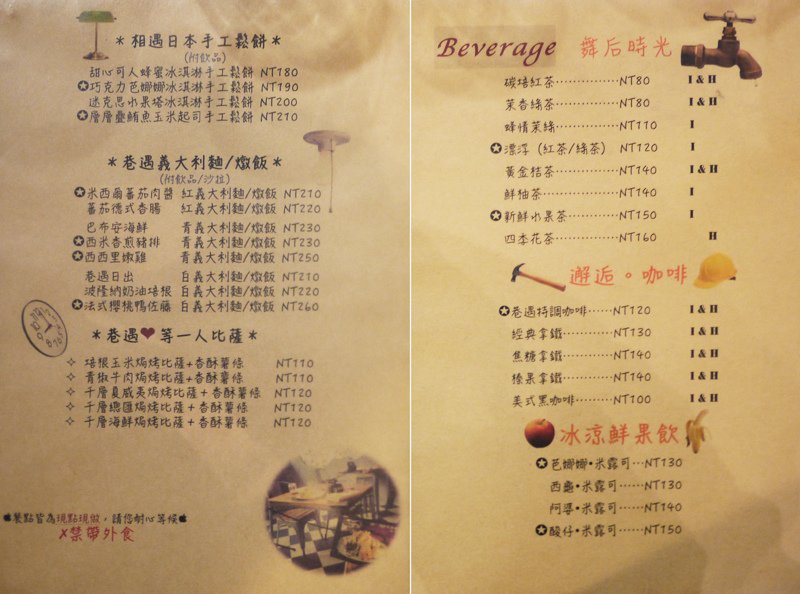 ＊相遇日本手工鬆餅＊
(附飲品)
甜心可人蜂蜜冰淇淋手工鬆餅 NT180
✪巧克力芭娜娜冰淇淋手工鬆餅 NT190
迷克思水果塔冰淇淋手工鬆餅 NT200
✪層層疊鮪魚玉米起司手工鬆餅 NT210
＊巷遇義大利麵/燉飯＊
(附飲品/沙拉)
✪米西爾蕃茄肉醬 紅義大利麵/燉飯 NT210
蕃茄德式香腸 紅義大利麵/燉飯 NT220
巴布安海鮮 青義大利麵/燉飯 NT230
✪西米香煎豬排 青義大利麵/燉飯 NT230
✪西西里嫩雞 青義大利麵/燉飯 NT250
巷遇日出 白義大利麵/燉飯 NT210
波隆納奶油培根 白義大利麵/燉飯 NT220
✪法式櫻桃鴨佐藤 白義大利麵/燉飯 NT260
＊巷遇❤等一人比薩＊
✧ 培根玉米焗烤比薩+香酥薯條 NT110
✧ 青椒牛肉焗烤比薩+香酥薯條 NT110
✧ 千層夏威夷焗烤比薩+香酥薯條 NT120
✧ 千層總匯焗烤比薩+香酥薯條 NT120
✧ 千層海鮮焗烤比薩+香酥薯條 NT120
餐點皆為現點現做，請您耐心等候
✗禁帶外食
Beverage 舞后時光
碳培紅茶……………NT80 I & H
茉香綠茶……………NT80 I & H
蜂情茉綠……………NT110 I
✪漂浮 (紅茶/綠茶) NT120 I
黃金桔茶……………NT140 I & H
鮮柚茶………………NT140 I
✪新鮮水果茶…………NT150 I
四季花茶……………NT160 H
邂逅。咖啡
✪巷遇特調咖啡……NT120 I & H
經典拿鐵……………NT130 I & H
焦糖拿鐵……………NT140 I & H
榛果拿鐵……………NT140 I & H
美式黑咖啡…………NT100 I & H
冰涼鮮果飲
✪芭娜娜•米露可…NT130
西龜•米露可……NT130
阿婆•米露可……NT140
✪酸仔•米露可……NT150